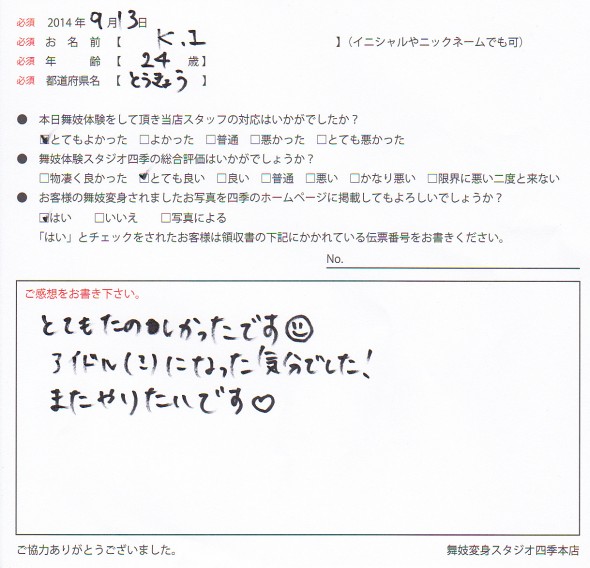 必須 2014年9月13日
必須 お名前【 K.I 】(イニシャルやニックネームでも可)
必須 年齢【 24 歳】
必須 都道府県名【 とうきょう 】
● 本日舞妓体験をして頂き当店スタッフの対応はいかがでしたか?
☑とてもよかった □よかった □普通 □悪かった □とても悪かった
● 舞妓体験スタジオ四季の総合評価はいかがでしょうか?
□物凄く良かった ☑とても良い □良い □普通 □悪い □かなり悪い □限界に悪い二度と来ない
● お客様の舞妓変身されましたお写真を四季のホームページに掲載してもよろしいでしょうか?
☑はい □いいえ □写真による
「はい」とチェックをされたお客様は領収書の下記にかかれている伝票番号をお書きください。
No.
ご感想をお書き下さい。
とてもたのしかったです☺
アイドル(?)になった気分でした!
またやりたいです♡
ご協力ありがとうございました。 舞妓変身スタジオ四季本店